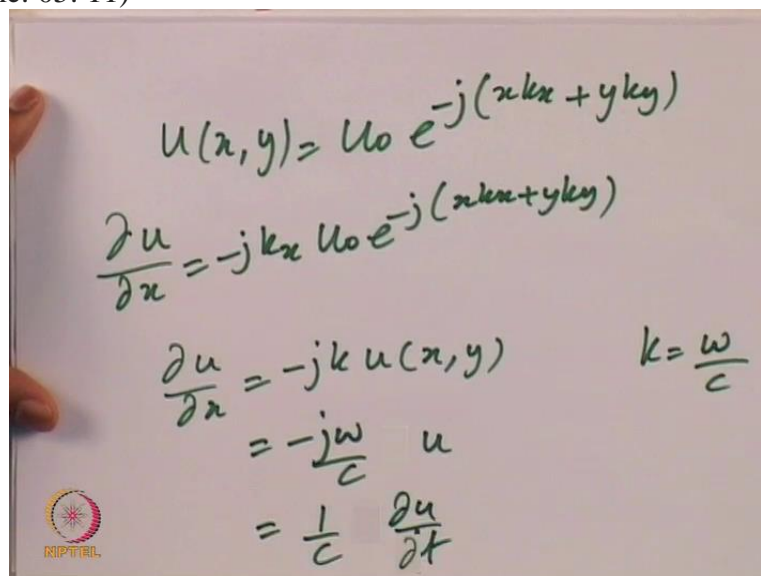 u(x,y) = u0 e^{-j(xkx + yky)}
∂u/∂x = -jkx u0 e^{-j(xkx+yky)}
∂u/∂x = -jk u(x,y) k = ω/c
= -jω/c u
= 1/c ∂u/∂t
NPTEL